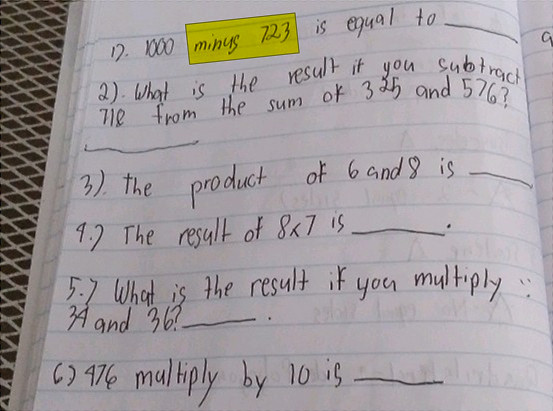 1). 1000 minus 723 is equal to
2). What is the result if you subtract
718 from the sum of 325 and 576?
3). The product of 6 and 8 is
4.) The result of 8x7 is .
5.) What is the result if you multiply :
34 and 36? .
6) 476 multiply by 10 is